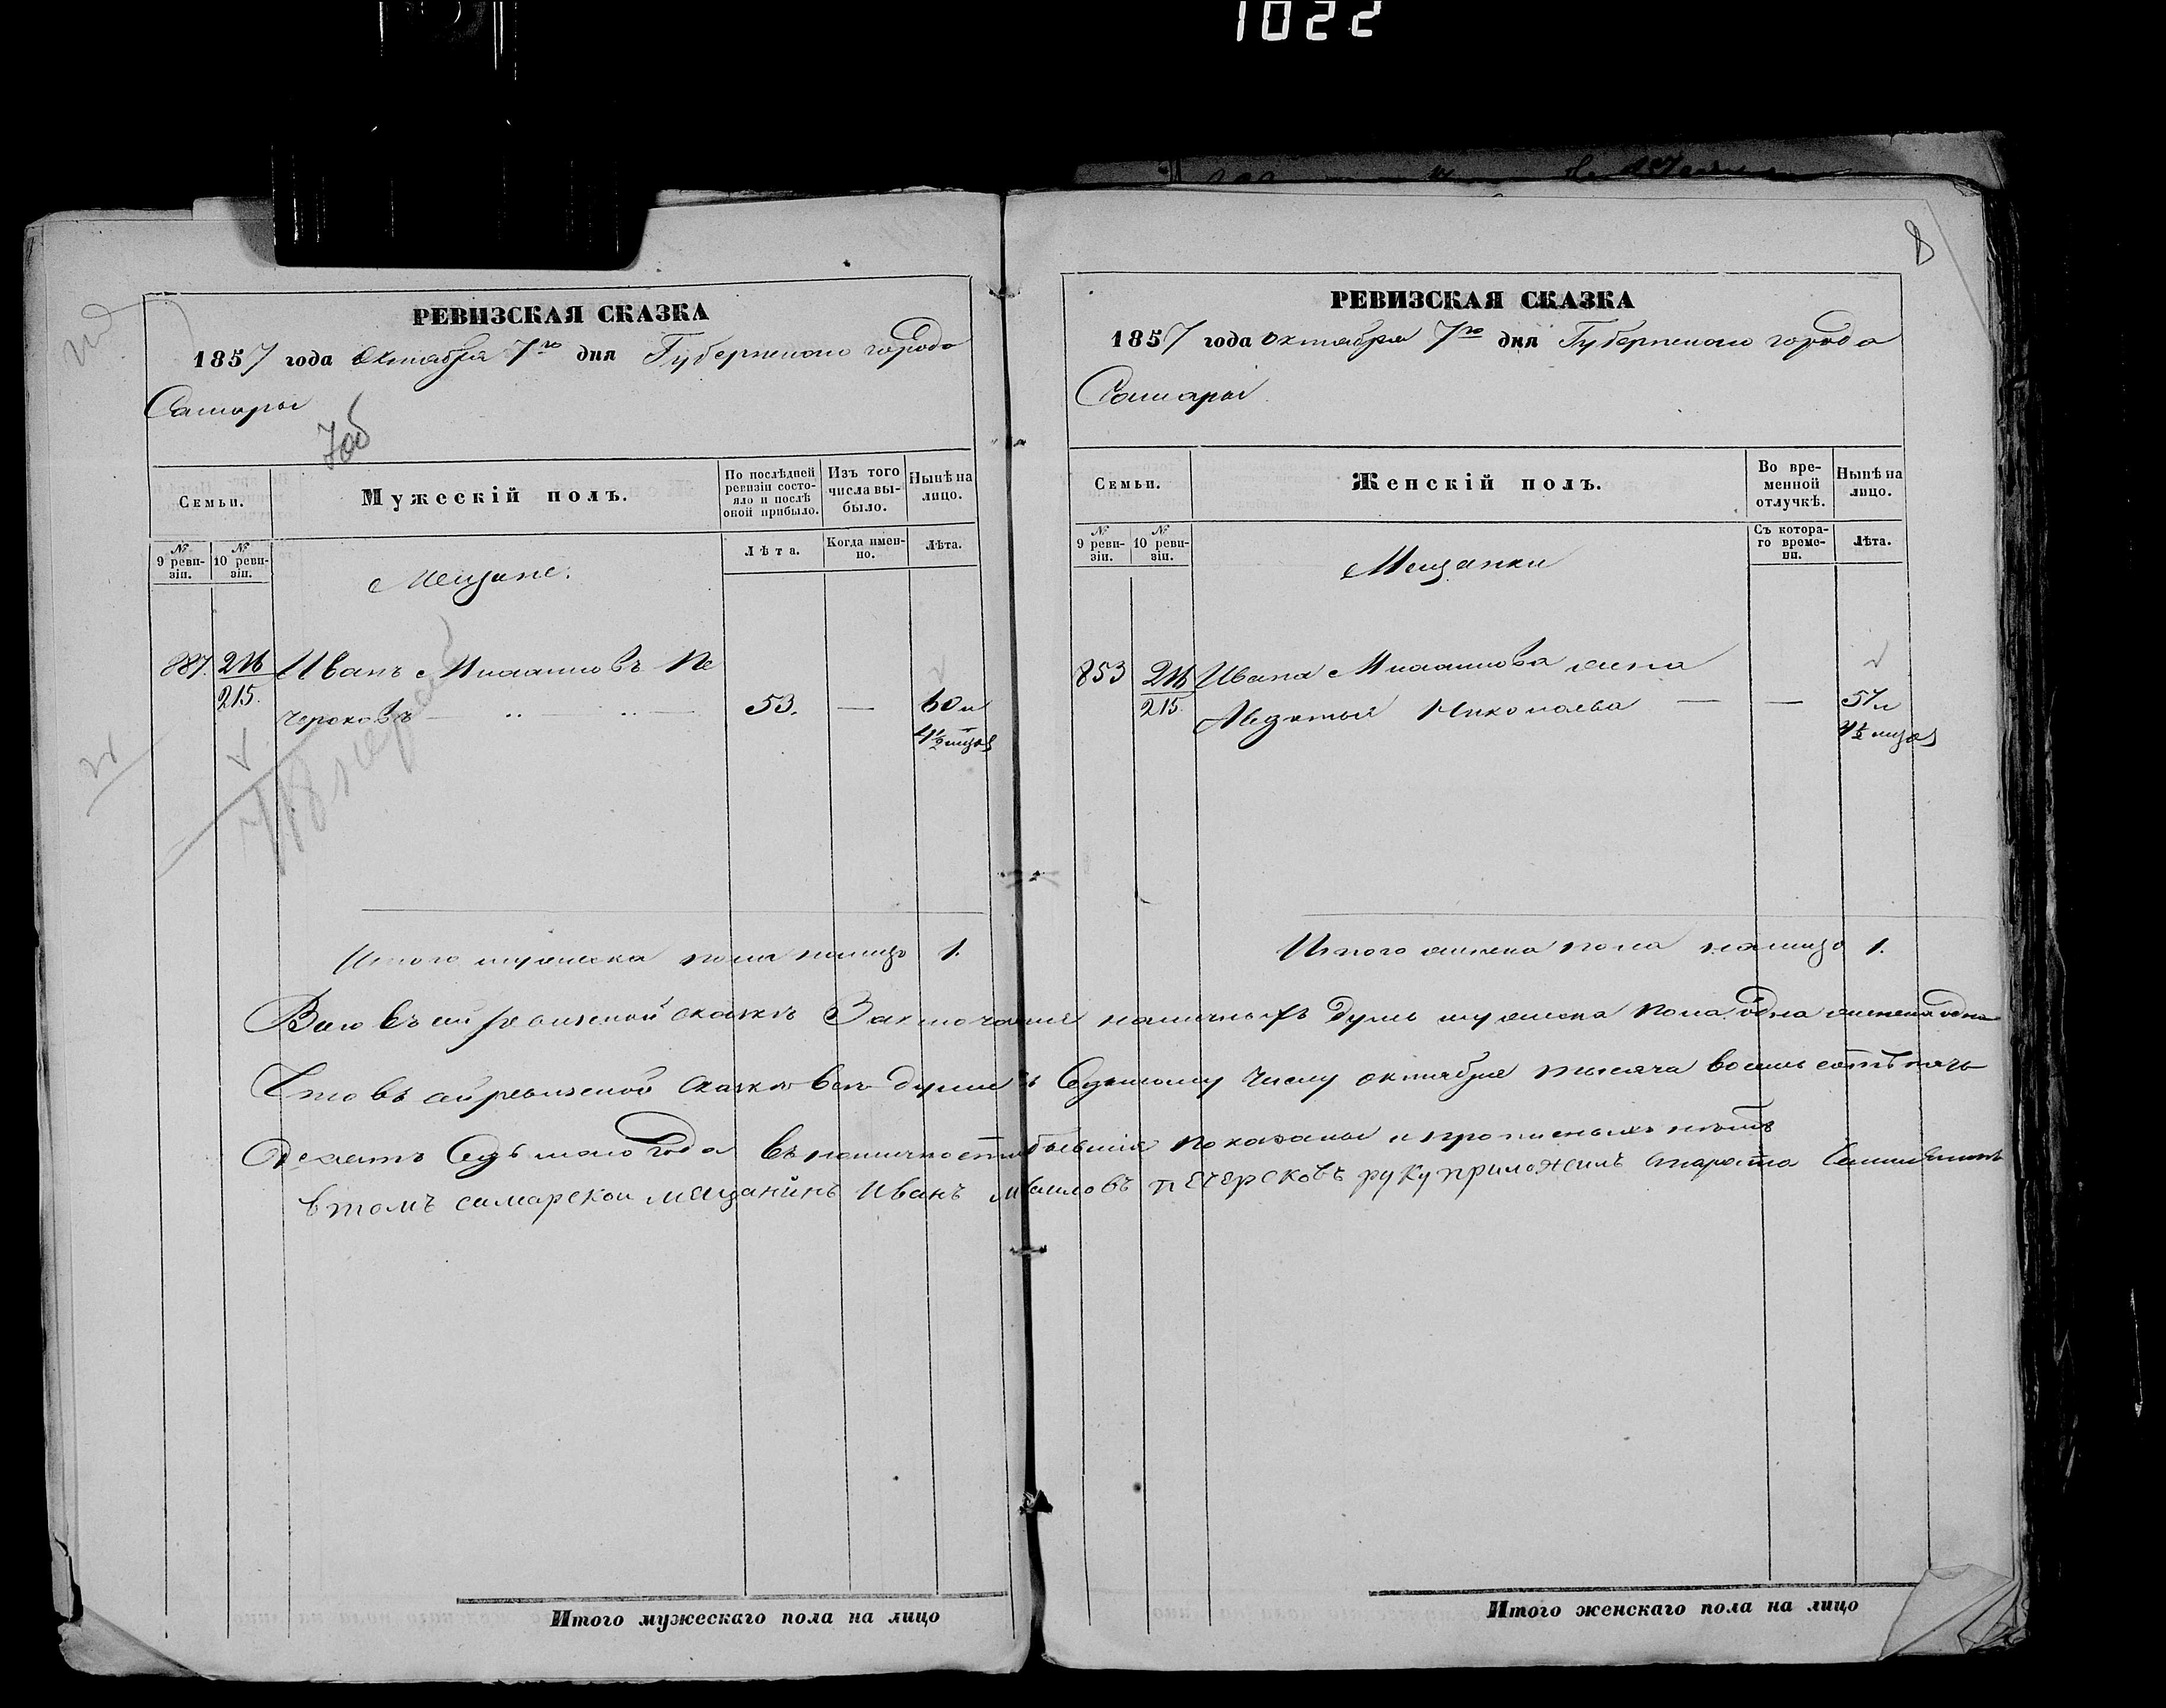 1022
8
РЕВИЗСКАЯ СКАЗКА
1857 года Октября 7го дня Губернскаго города
Самары
706
Семьи.
Мужескій полъ.
По послѣдней ревизіи состояло и послѣ оной прибыло.
Изъ того числа выбыло.
Нынѣ на лицо.
№ 9 ревизіи.
№ 10 ревизіи.
Лѣта.
Когда именно.
Лѣта.
Мещане.
887. 216 Иванъ Михаиловъ Пе
215. черсковъ 53. — 60
Итого мужеска пола налицо 1.
РЕВИЗСКАЯ СКАЗКА
1857 года Октября 7го дня Губернскаго города
Самары
Семьи.
Женскій полъ.
Во временной отлучкѣ.
Нынѣ на лицо.
№ 9 ревизіи.
№ 10 ревизіи.
Съ котораго времени.
Лѣта.
Мещанки
853 216 Ивана Михаилова жена
215. Авдотья Николаева — — 57
Итого женска пола налицо 1.
Всего въ сей ревизской сказкѣ Заключается наличныхъ душъ мужеска пола одна женска одна
Что въ сей ревизской сказкѣ все души къ Седьмому числу октября тысяча восемь сотъ пять
Десятъ Седьмаго Года въ наличности бывшія показаны и прописныхъ нѣтъ
в томъ самарской мещанинъ Иванъ Михаиловъ печерсковъ руку приложилъ староста
Итого мужескаго пола на лицо
Итого женскаго пола на лицо